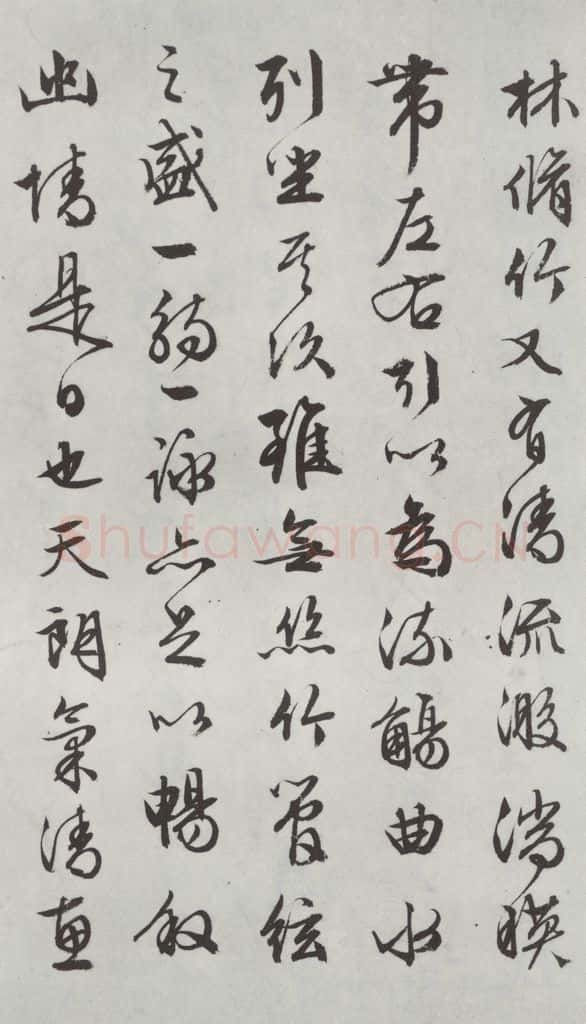 林脩竹又有清流激湍暎
帶左右引以為流觴曲水
列坐其次雖無絲竹管絃
之盛一觴一詠亦足以暢敘
幽情是日也天朗氣清惠
Shufawang.CN